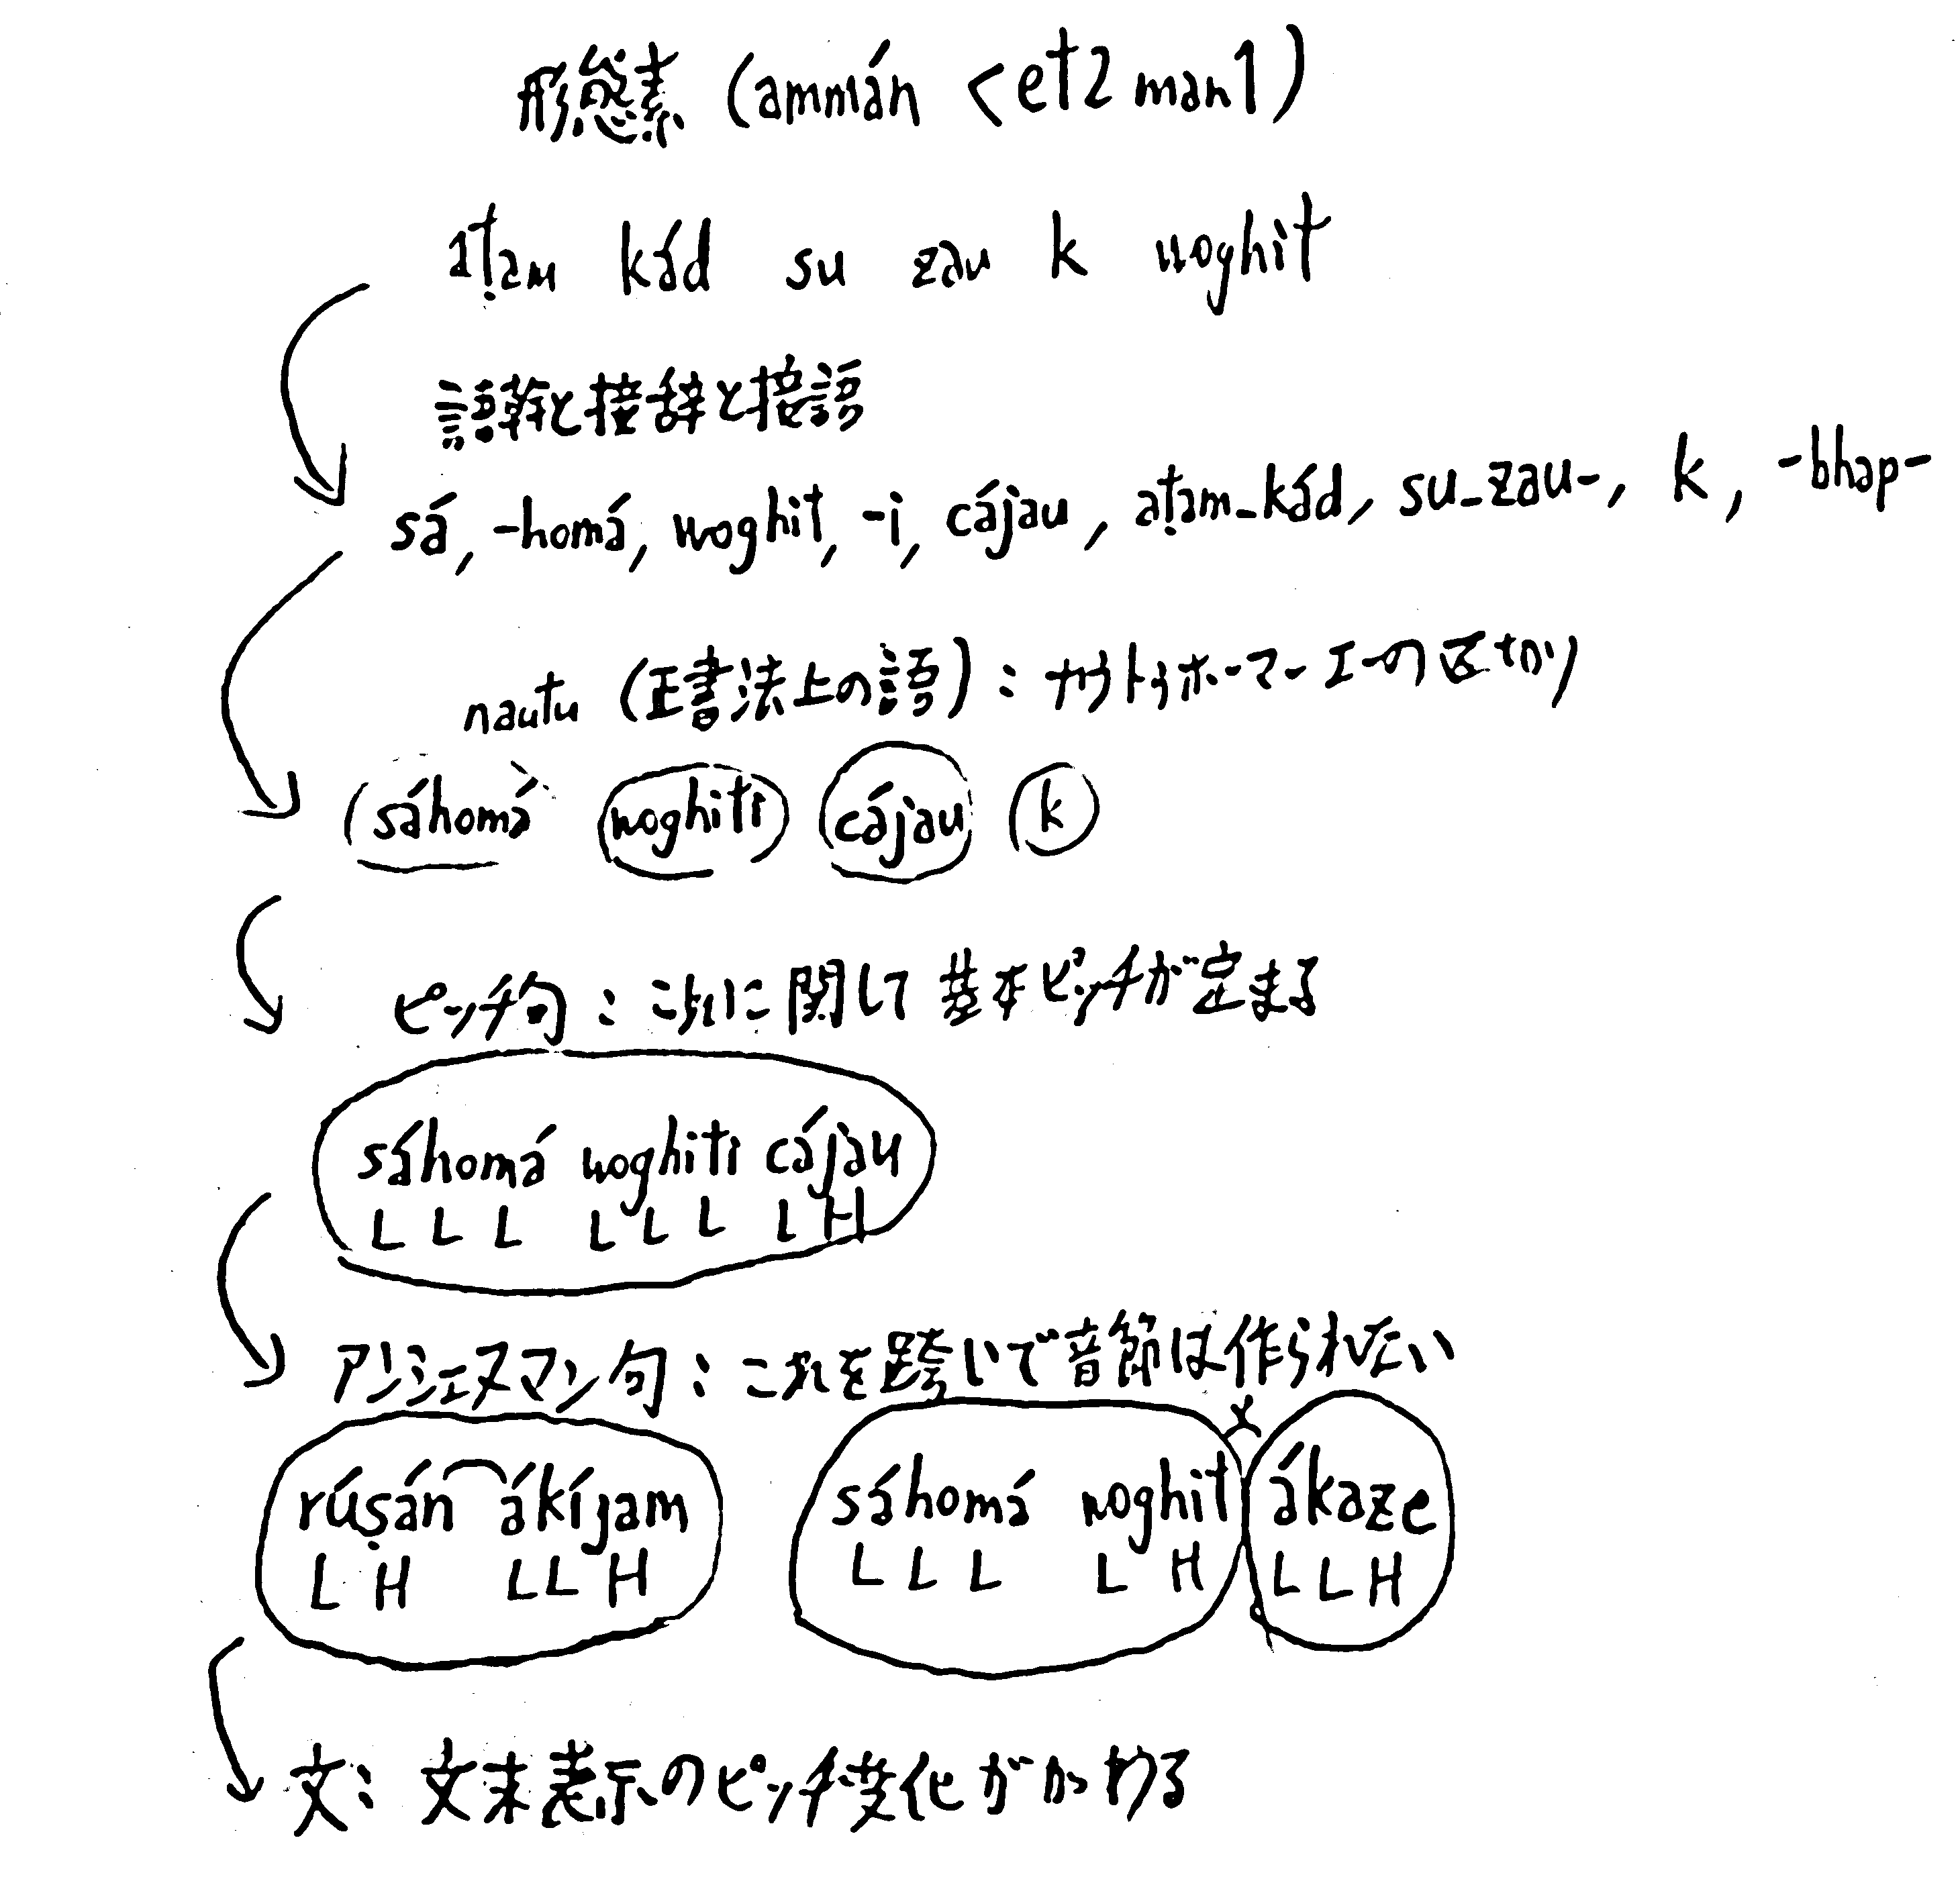 形態素 (ammán < et2 man1)
aṭam kád su zau k woghit
語幹と接辞と接語
sá, -homá, woghit, -i, cájau, aṭam_kád, su_zau-, k, -bhap-
nautu (正書法上の語) : サトゥホーマーエーの区切り
sáhomá woghiti cájau k
ピッチ句 : これに関して基本ピッチが定まる
sáhomá woghiti cájau
L L L L L L L H
アジェスマン句 : これを跨いで音節は作られない
rúṣán ákíjam sáhomá woghit ákaze
L H L L H L L L L H L L H
文 : 文末表示のピッチ変化が加わる